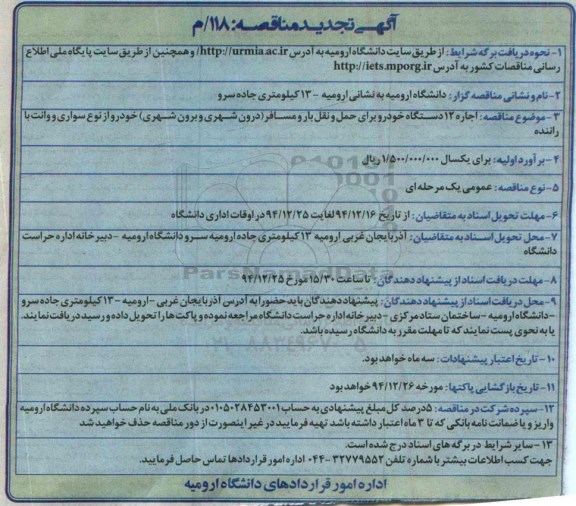 آگهی تجدید مناقصه: ۱۱۸/م
۱- نحوه دریافت برگه شرایط: از طریق سایت دانشگاه ارومیه به آدرس http://urmia.ac.ir/ و همچنین از طریق سایت پایگاه ملی اطلاع
رسانی مناقصات کشور به آدرس http://iets.mporg.ir
۲- نام و نشانی مناقصه گزار: دانشگاه ارومیه به نشانی ارومیه - ۱۳ کیلومتری جاده سرو
۳- موضوع مناقصه: اجاره ۱۲ دستگاه خودرو برای حمل و نقل بار و مسافر (درون شهری و برون شهری) خودرو از نوع سواری و وانت با
راننده
۴- برآورد اولیه: برای یکسال ۱/۵۰۰/۰۰۰/۰۰۰ ریال
۵- نوع مناقصه: عمومی یک مرحله ای
۶- مهلت تحویل اسناد به متقاضیان: از تاریخ ۹۴/۱۲/۱۶ لغایت ۹۴/۱۲/۲۵ در اوقات اداری دانشگاه
۷- محل تحویل اسناد به متقاضیان: آذربایجان غربی ارومیه ۱۳ کیلومتری جاده ارومیه سرو دانشگاه ارومیه - دبیرخانه اداره حراست
دانشگاه
۸- مهلت دریافت اسناد از پیشنهاد دهندگان: تا ساعت ۱۵/۳۰ مورخ ۹۴/۱۲/۲۵
۹- محل دریافت اسناد از پیشنهاد دهندگان: پیشنهاد دهندگان باید حضورا به آدرس آذربایجان غربی - ارومیه - ۱۳ کیلومتری جاده سرو
- دانشگاه ارومیه - ساختمان ستاد مرکزی - دبیرخانه اداره حراست دانشگاه مراجعه نموده و پاکت ها را تحویل داده و رسید دریافت نمایند.
یا به نحوی پست نمایند که تا مهلت مقرر به دانشگاه رسیده باشد.
۱۰- تاریخ اعتبار پیشنهادات: سه ماه خواهد بود.
۱۱- تاریخ بازگشایی پاکتها: مورخه ۹۴/۱۲/۲۶ خواهد بود
۱۲- سپرده شرکت در مناقصه: ۵ درصد کل مبلغ پیشنهادی به حساب ۰۱۰۵۰۲۸۴۵۳۰۰۱ در بانک ملی به نام حساب سپرده دانشگاه ارومیه
واریز و یا ضمانت نامه بانکی که تا ۳ ماه اعتبار داشته باشد تهیه فرمایید در غیر اینصورت از دور مناقصه حذف خواهید شد
۱۳- سایر شرایط در برگه های اسناد درج شده است.
جهت کسب اطلاعات بیشتر با شماره تلفن ۳۲۷۷۹۵۵۲-۰۴۴ اداره امور قراردادها تماس حاصل فرمایید.
اداره امور قراردادهای دانشگاه ارومیه